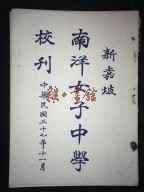 新嘉坡
南洋女子中學
校刊
中華民國三十七年十一月